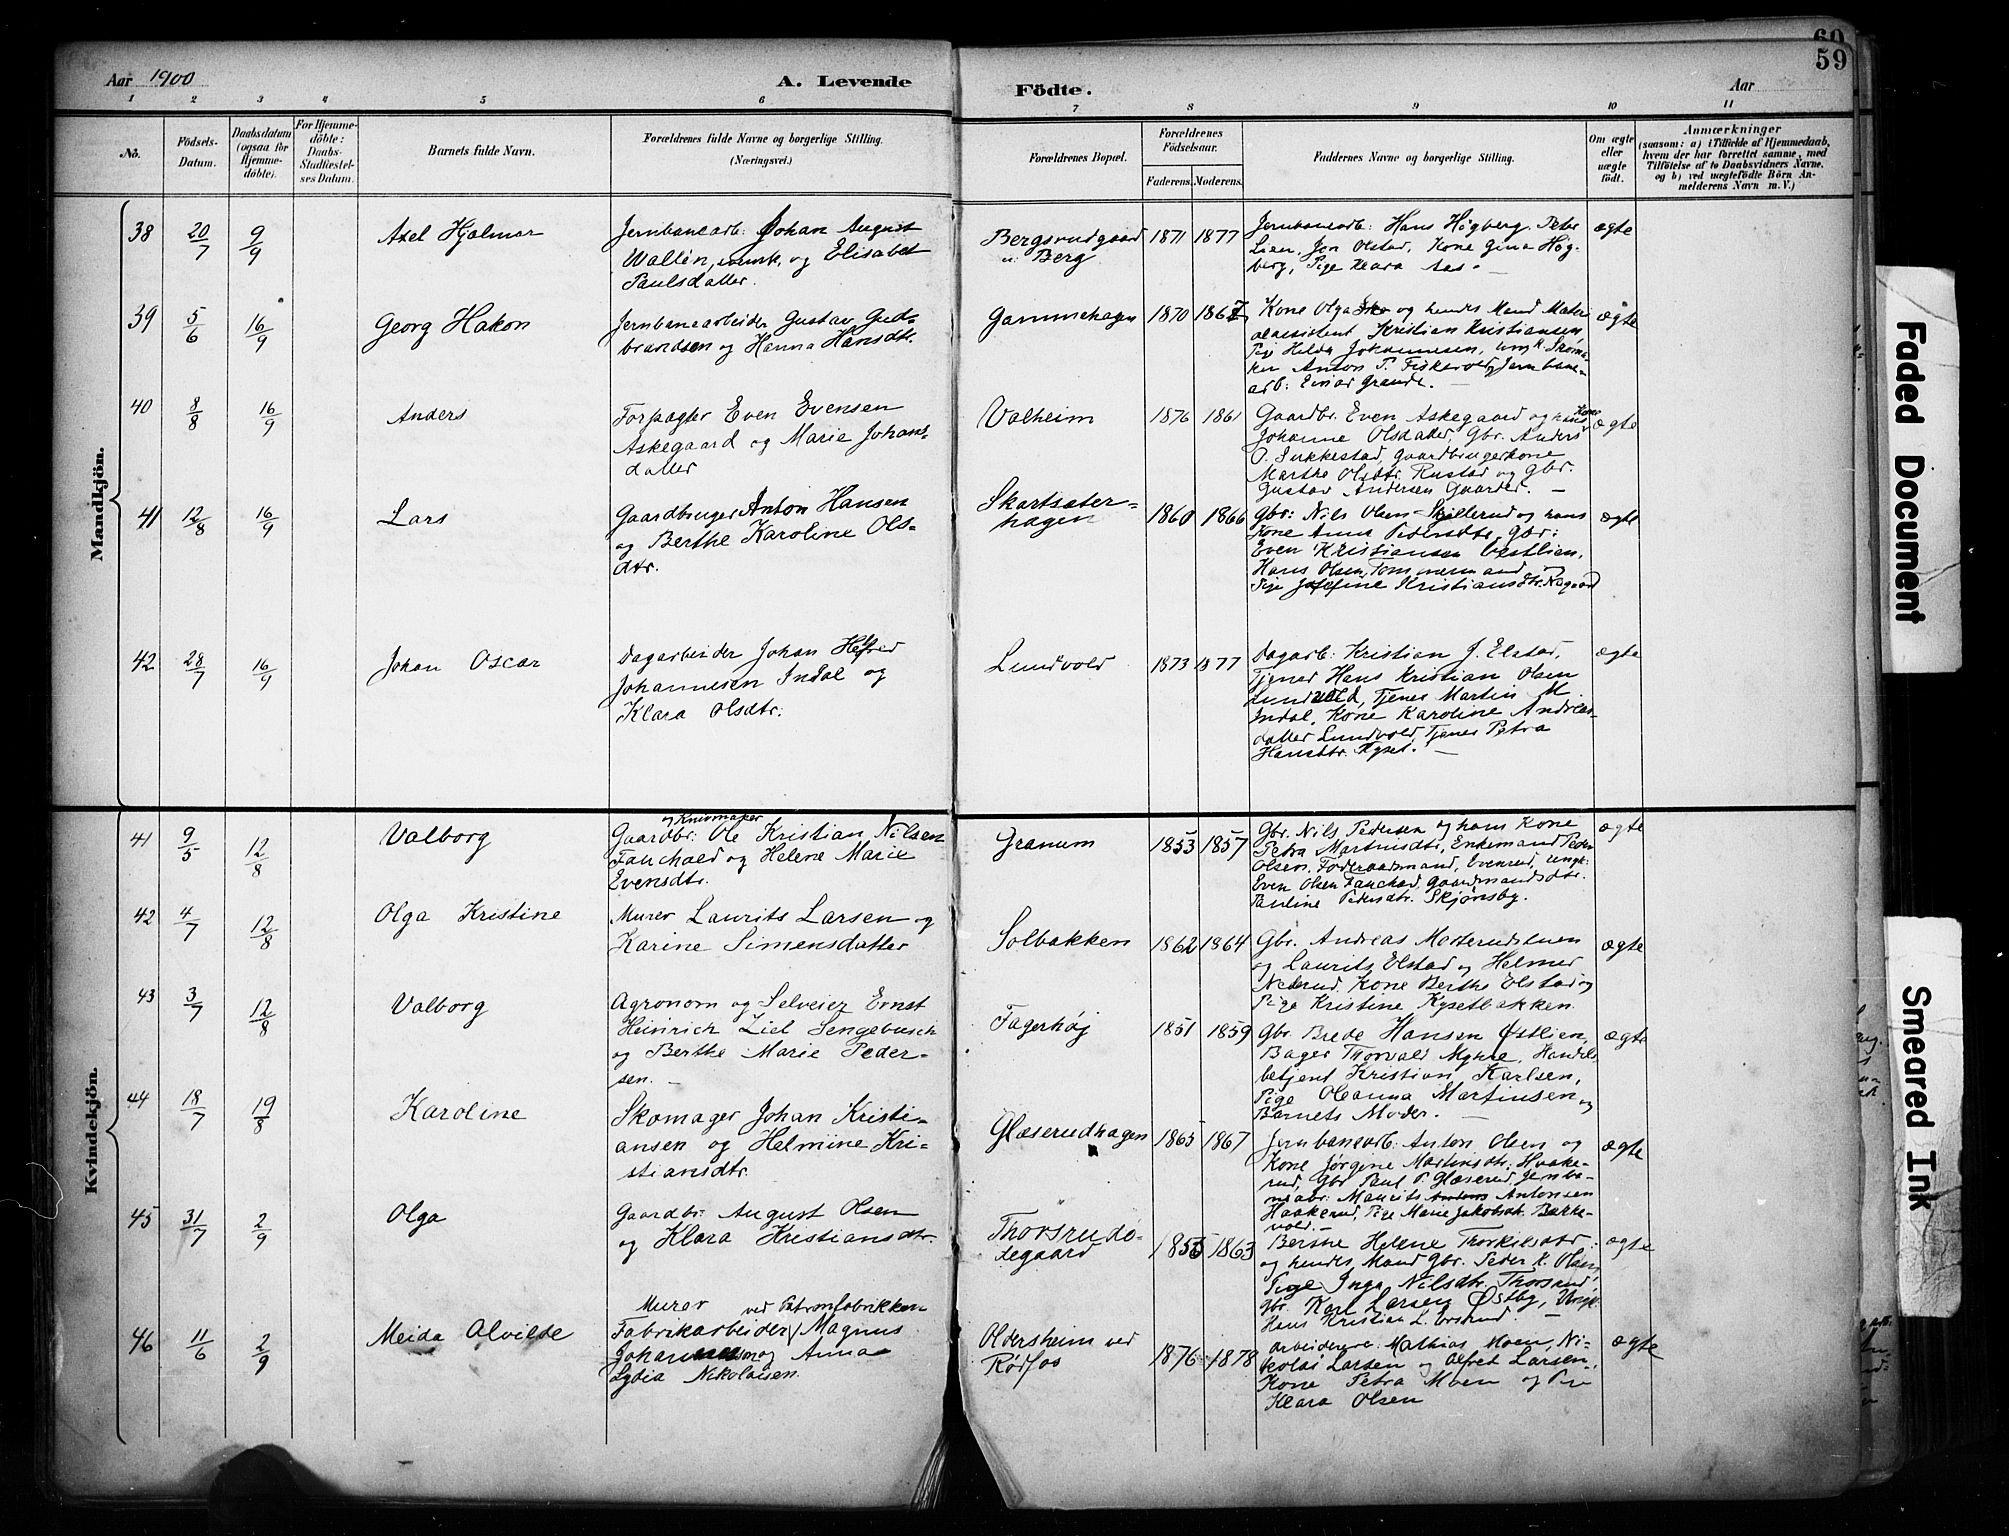 60
59
Aar 1900
A. Levende
Födte.
Aar
1 2 3 4 5 6 7 8 9 10 11
No.
Födsels-
Datum.
Daabsdatum
(ogsaa for
Hjemme-
döbte).
For Hjemme-
döbte:
Daabs-
Stadfæstel-
ses Datum.
Barnets fulde Navn.
Forældrenes fulde Navne og borgerlige Stilling.
(Næringsvei.)
Forældrenes Bopæl.
Forældrenes
Födselsaar.
Faderens. Moderens.
Faddernes Navne og borgerlige Stilling.
Om ægte
eller
uægte
födt.
Anmærkninger
(saasom: a) i Tilfælde af Hjemmedaab,
hvem der har forrettet samme, med
Tilföielse af to Daabsvidners Navne,
og b) ved uægtefödte Börn An-
melderens Navn m. V.)
Mandkjön.
38 20/7 9/9
Axel Hjalmar
Jernbanearb: Johan August
Wallin, og Elisabet
Paulsdatter
Bergsrudgaard
u. Berg
1871 1877
Jernbanearb: Hans Högberg, Peter
Lien, Jon Olstad, Kone Gina Hög-
berg, Pige Klara Aas. —
ægte
39 5/6 16/9
Georg Hakon
Jernbanearbeider Gustav Gud-
brandsen og Hanna Hansdtr.
Gammehagen
1870 1867
Kone Olga og hendes Mand Materi
alassistent Kristian Kristiansen
Pige Hilda Johannesen, ungk. Skoma-
ker Anton P. Fiskevold, Jernbane-
arb: Einar Grande. —
ægte
40 8/8 16/9
Anders
Forpagter Even Evensen
Askegaard og Marie Johans-
datter
Valheim
1876 1861
Gaardbr. Even Askegaard og hans Kone
Johanne Olsdatter, Gbr. Anders
O. Sukkestad, Gaardbrugerkone
Marthe Olsdtr. Rustad og Gbr.
Gustav Andersen Gaarder. —
ægte
41 12/8 16/9
Lars
Gaardbruger Anton Hansen
og Berthe Karoline Ols-
dtr.
Skartsæter-
hagen
1860 1866
Gbr: Nils Olsen Skjellerud og hans
Kone Anne Pedersdtr, Gbr:
Even Kristiansen Vestlien,
Hans Olsen, Tommermand og
Pige Josefine Kristiansdtr.
ægte
42 28/7 16/9
Johan Oscar
Dagarbeider Johan
Johannesen Indal og
Klara Olsdtr.
Lundvold
1873 1877
Dagarb: Kristian J. Elstad,
Tjener Hans Kristian Olsen
Lundvold, Tjener Martin M.
Indal, Kone Karoline Andreas-
datter Lundvold, Tjener Petra
Hansdtr. Kyset. —
ægte
Kvindekjön.
41 9/5 12/8
Valborg
og Knivmaker
Gaardbr: Ole Kristian Nilsen
Fauchald og Helene Marie
Evensdtr.
Granum
1853 1857
Gbr. Nils Pedersen og hans Kone
Petra Martinsdtr, Enkemand Peder
Olsen, Föderaadsmand, Evenrud, ungk:
Even Olsen Fauchald, Gaardmandsdtr.
Pauline Pedersdtr. Skjönsby.
ægte
42 4/7 12/8
Olga Kristine
Murer Laurits Larsen og
Karine Simensdatter
Solbakken
1862 1864
Gbr. Andreas Mosterudstuen
og Laurits Elstad og Helmer
Nederud, Kone Berthe Elstad og
Pige Kristine Kysetbakken
ægte
43 3/7 12/8
Valborg
Agronom og Selveier Ernst
Heinrich Ziel Sengebusch
og Berthe Marie Peder-
sen. —
Fagerhøj
1851 1859
Gbr. Brede Hansen Østlien,
Bager Thorvald Myhre, Handels
betjent Kristian Karlsen,
Pige Oleanna Martinsen og
Barnets Moder. —
ægte
44 18/7 19/8
Karoline
Skomager Johan Kristi-
ansen og Helmine Kri-
stiansdtr.
Glæserudhagen
1865 1867
Jernbanearb: Anton Olsen og
Kone Jörgine Martinsdtr: Haake-
rud, Gbr Paul P. Glæserud, Jernba-
nearb: Maurits Antonsen
Haakerud, Pige Marie Jakobsdtr. Bakke-
vold. —
ægte
45 31/7 2/9
Olga
Gaardbr: August Olsen
og Klara Kristiansdtr.
Thorsruds-
degaard
1855 1863
Berthe Helene Thorkilsdtr.
og hendes Mand Gbr. Peder K. Olsen,
Pige Inga Nilsdtr. Thorsrud,
Gbr. Karl Larsen Østby, Ungk.
Hans Kristian L. —
ægte
46 11/6 2/9
Meida Alvilde
Murer ved Patronfabrikken
Fabrikarbeider / Magnus
Johannesen og Anna
Lydia Nikolaisen.
Oldersheim ved
Rödfos
1876 1878
Arbeiderne: Mathias Moen, Ni-
kolai Larsen og Alfred Larsen,
Kone Petra Moen og Pige
Klara Olsen
ægte
Faded Document
Smeared Ink